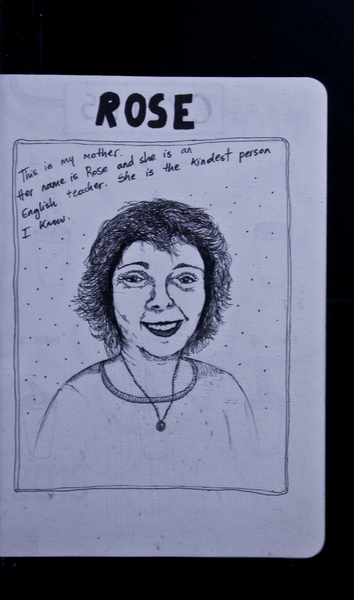 ROSE
This is my mother.
Her name is Rose and she is an
English teacher. She is the kindest person
I know.